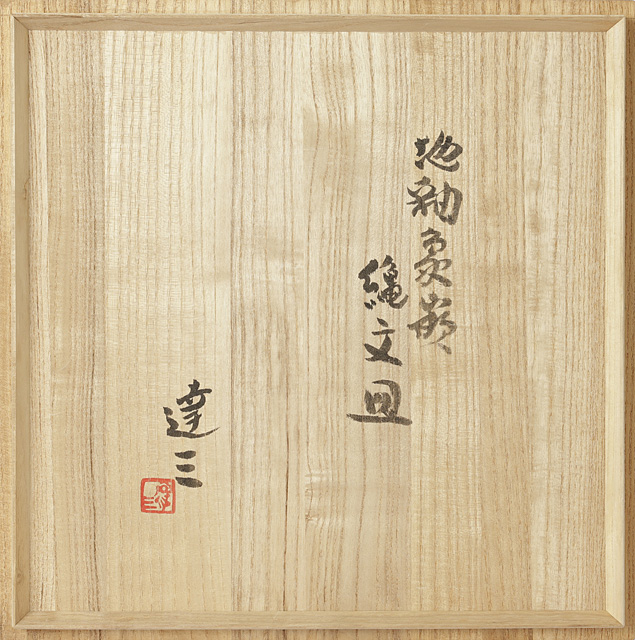 地釉象嵌
縄文皿
達三